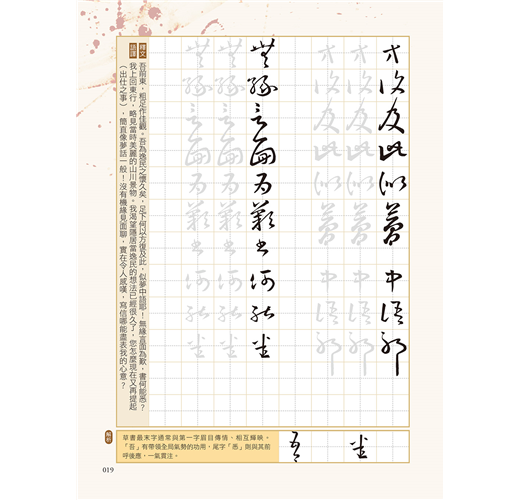 方復及此似夢中語耶
方復及此似夢中語耶
方復及此似夢中語耶
無緣言面為歎書何能悉
無緣言面為歎書何能悉
無緣言面為歎書何能悉
釋文
吾前東，粗足作佳觀。吾為逸民之懷久矣，足下何以方復及此，似夢中語耶！無緣言面為歎，書何能悉？
語譯
我上回東行，略見當時美麗的山川景物。我渴望隱居當逸民的想法已經很久了，您怎麼現在又再提起
（出仕之事），簡直像夢話一般！沒有機緣見面聊，實在令人感嘆，寫信哪能盡表我的心意？
解析
草書最末字通常與第一字眉目傳情、相互輝映。
「吾」有帶領全局氣勢的功用，尾字「悉」則與其前
呼後應，一氣貫注。
悉
吾
019